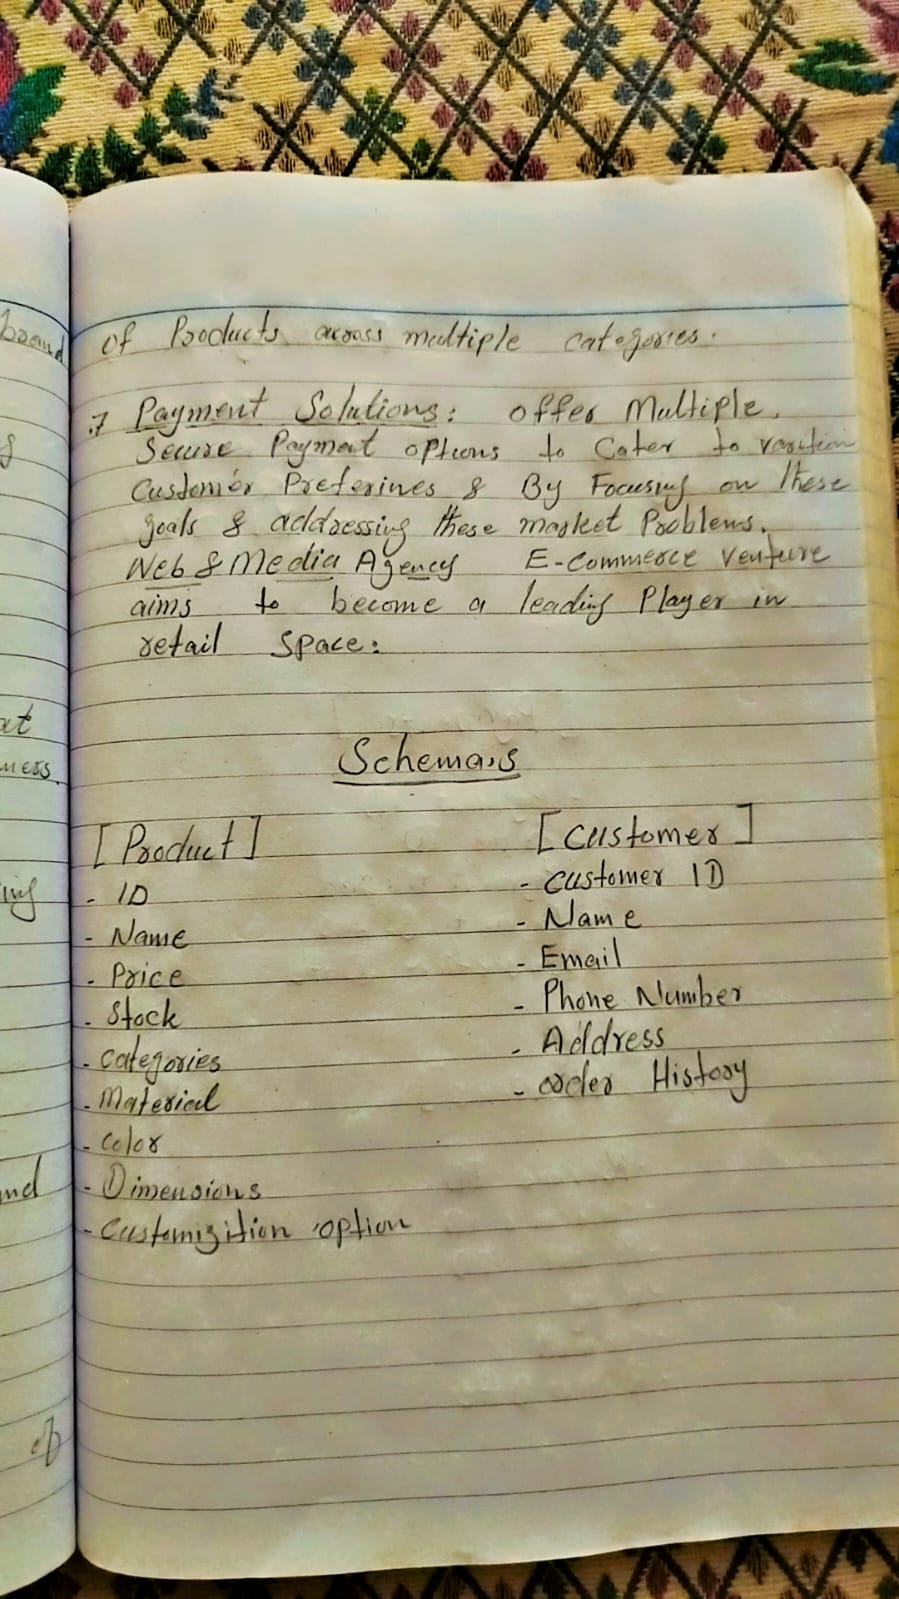 of Products across multiple categories.
.7 Payment Solutions: offer Multiple.
Secure Payment options to Cater to
Customer Preferines & By Focusing on these
goals & addressing these market Problems.
Web & Media Agency E-Commerce Venture
aims to become a leading Player in
retail Space:
Schema,s
[Product]
- ID
- Name
- Price
- Stock
- categories
- Material
- color
- Dimensions
- Customizition option
[Customer]
- Customer ID
- Name
- Email
- Phone Number
- Address
- order History
brand
of